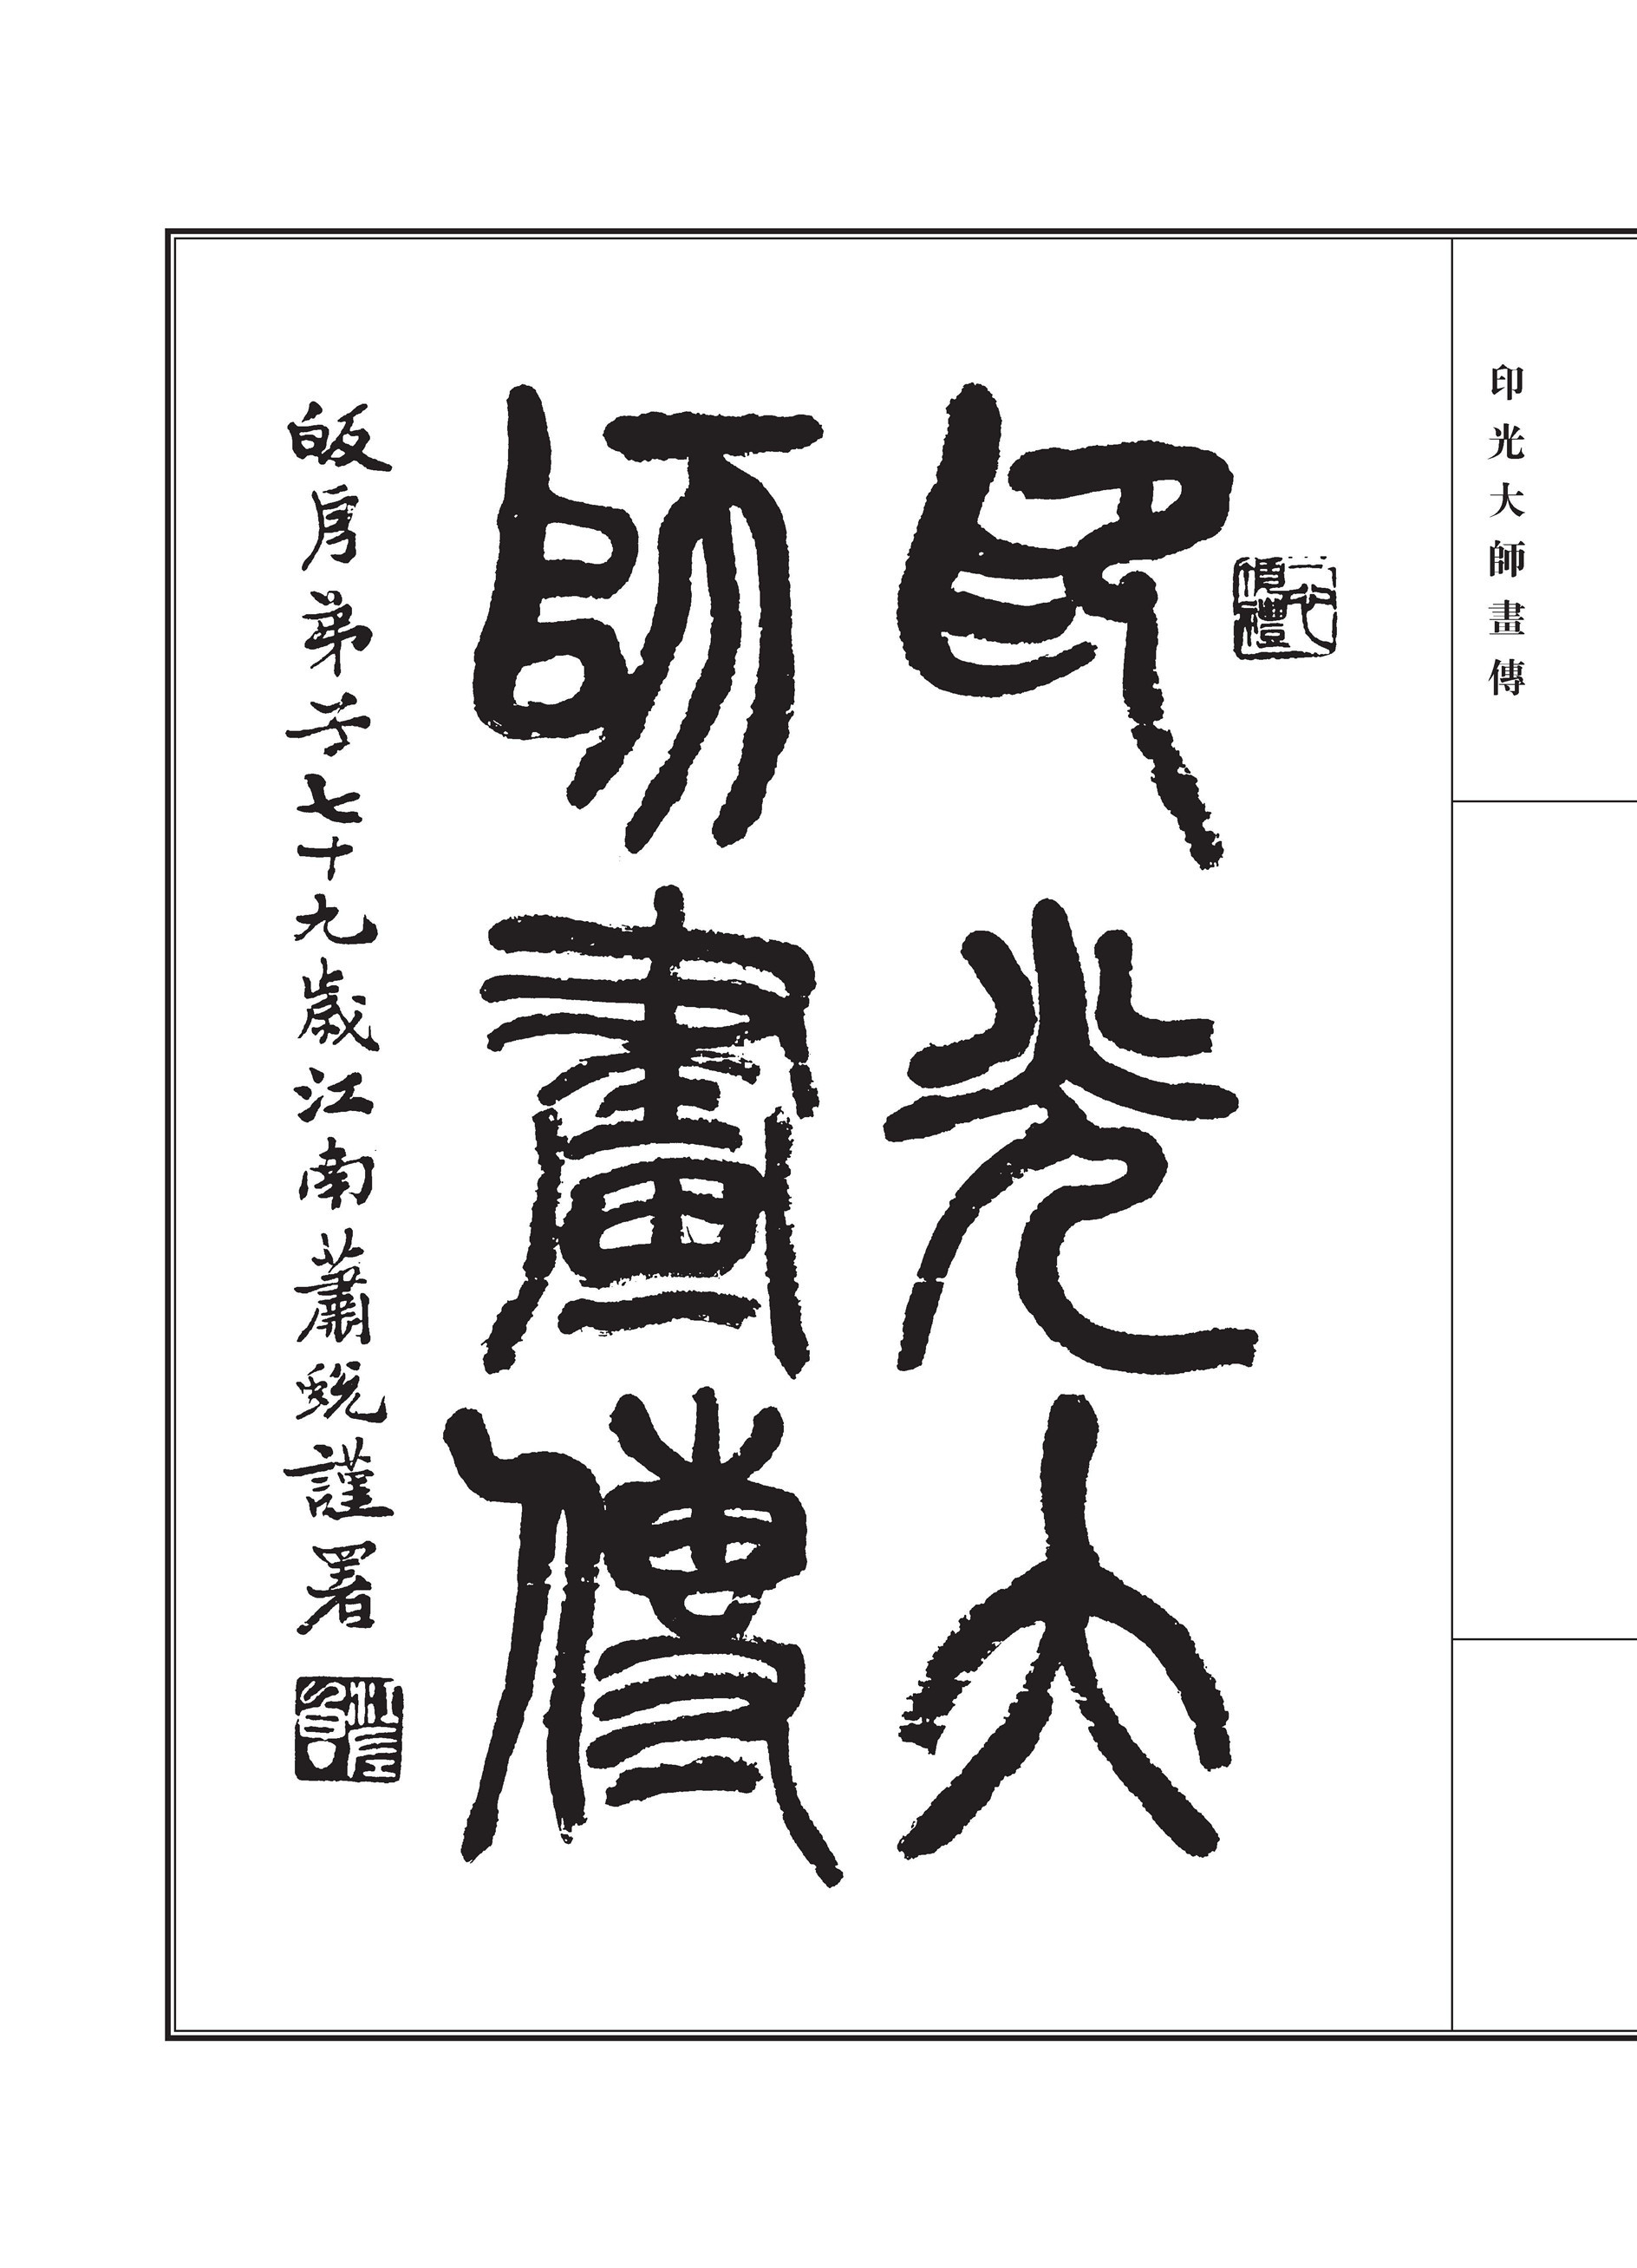 印光大師畫傳
一心頂禮
印光大
師畫傳
皈㐆弟子七十九歲江南蕭蛻謹署